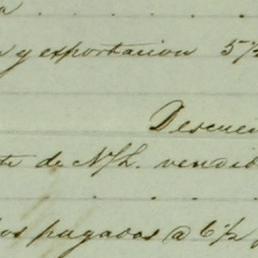 y exportacion 5
Descue
de N/L. vendid
os pagados @ 6 1/2